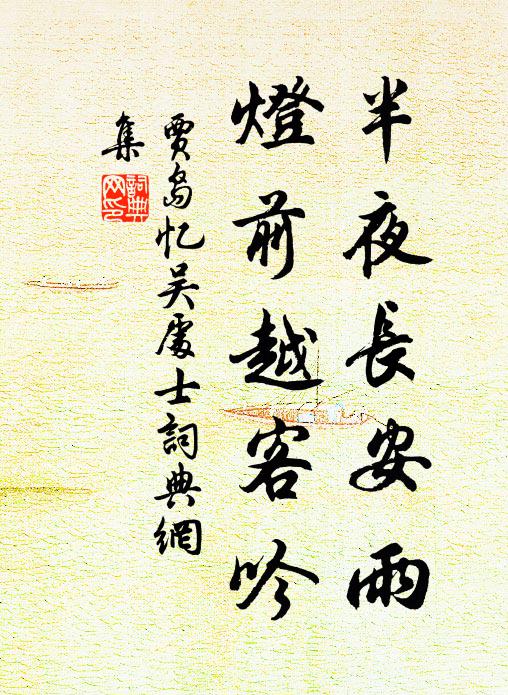 半夜長安雨
燈前越客吟
賈島忆吴處士詞典網
集
詞典
网印